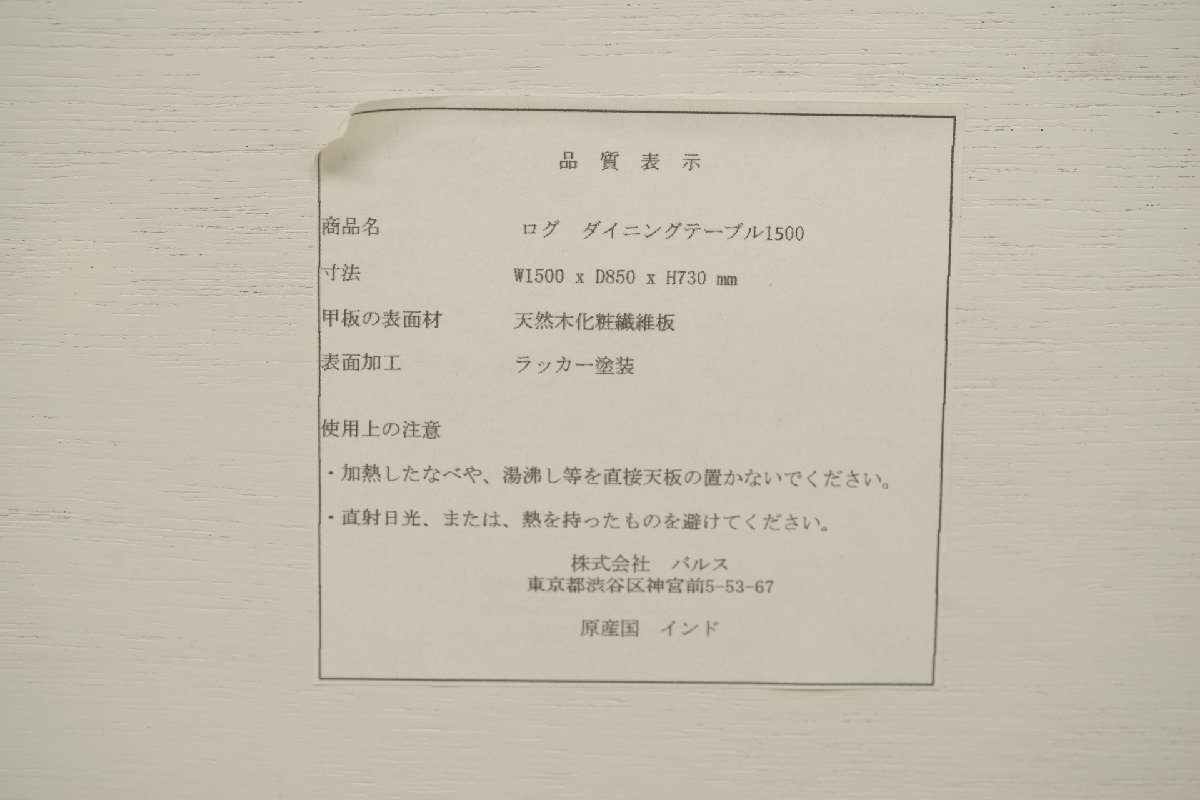 品 質 表 示
商品名 ログ ダイニングテーブル1500
寸法 W1500 x D850 x H730 mm
甲板の表面材 天然木化粧繊維板
表面加工 ラッカー塗装
使用上の注意
・加熱したなべや、湯沸し等を直接天板の置かないでください。
・直射日光、または、熱を持ったものを避けてください。
株式会社 バルス
東京都渋谷区神宮前5-53-67
原産国 インド